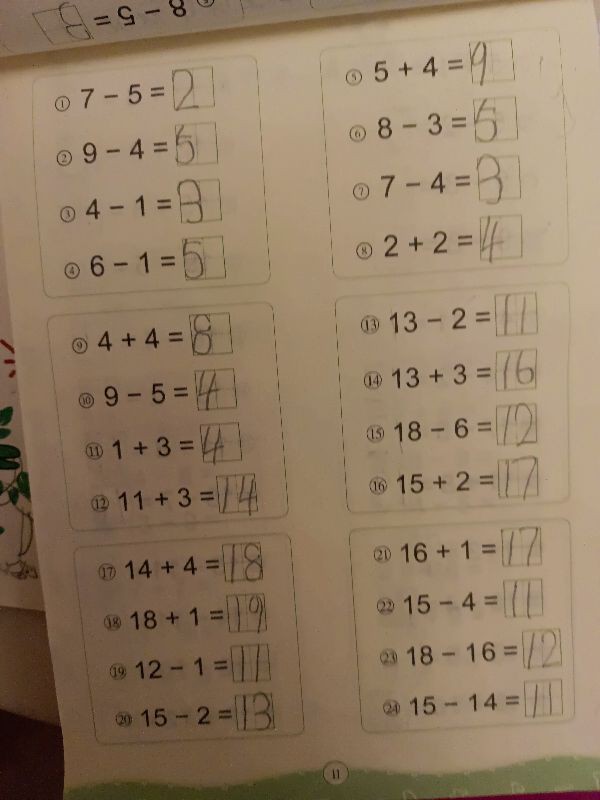 8 − 5 = 3
① 7 − 5 = 2
② 9 − 4 = 5
③ 4 − 1 = 3
④ 6 − 1 = 5
⑤ 5 + 4 = 9
⑥ 8 − 3 = 5
⑦ 7 − 4 = 3
⑧ 2 + 2 = 4
⑨ 4 + 4 = 8
⑩ 9 − 5 = 4
⑪ 1 + 3 = 4
⑫ 11 + 3 = 14
⑬ 13 − 2 = 11
⑭ 13 + 3 = 16
⑮ 18 − 6 = 12
⑯ 15 + 2 = 17
⑰ 14 + 4 = 18
⑱ 18 + 1 = 19
⑲ 12 − 1 = 11
⑳ 15 − 2 = 13
㉑ 16 + 1 = 17
㉒ 15 − 4 = 11
㉓ 18 − 16 = 12
㉔ 15 − 14 = 11
11